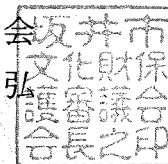 会弘
坂井市
文化財保
護審議会
会長之印